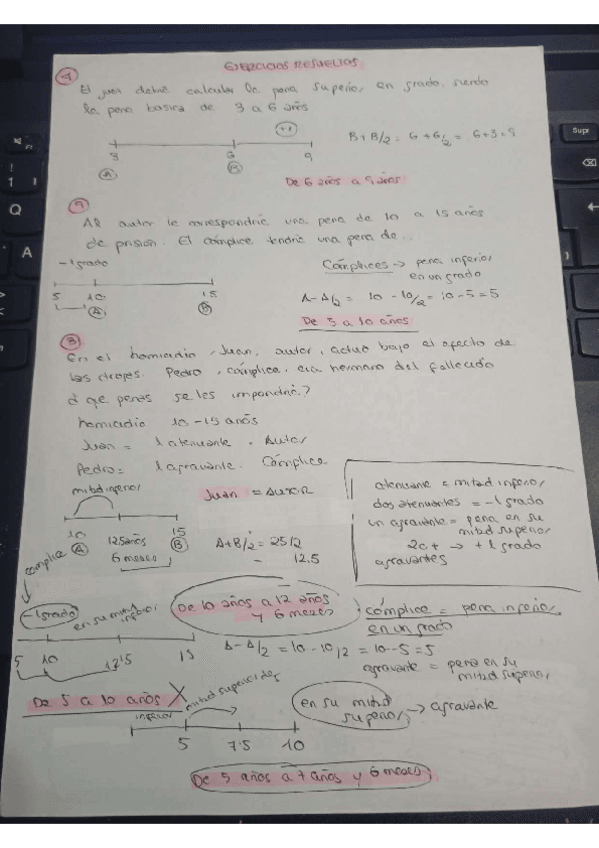 EJERCICIOS RESUELTOS
El juez debiré calcular la pena superior en grado, siendo
la pena basica de 3 a 6 años
+1
B+B/2 = 6+6/2 = 6+3=9
3 6 9
A B
De 6 años a 9 años
9
Al autor le correspondriá una pena de 10 a 15 años
de prisión. El cómplice tendriá una pena de...
-1 grado
Cómplices → pena inferior
en un grado
5 10 15
A B
A-A/2 = 10-10/2 = 10-5=5
De 5 a 10 años
8
En el homicidio, Juan, autor, actuo bajo el efecto de
las drogas. Pedro, cómplice, era hermano del fallecido
¿que penas se les impondriá?
homicidio 10-15 años
Juan = 1 atenuante. Autor
Pedro = 1 agravante. Cómplice
mitad inferior
Juan = Autor
10 12.5 años 15
A 6 meses B
A+B/2 = 25/2
= 12.5
atenuante = mitad inferior
dos atenuantes = -1 grado
un agravante = pena en su
mitad superior
2 o + → +1 grado
agravantes
cómplice
-1 grado
en su mitad
inferior
De 10 años a 12 años
y 6 meses
cómplice = pena inferior
en un grado
5 10 12'5 15
A-A/2 = 10-10/2 = 10-5=5
agravante = pena en su
mitad superior
De 5 a 10 años X
inferior
mitad superior
en su mitad
superior → agravante
5 7.5 10
De 5 años a 7 años y 6 meses
Supr
Q
A